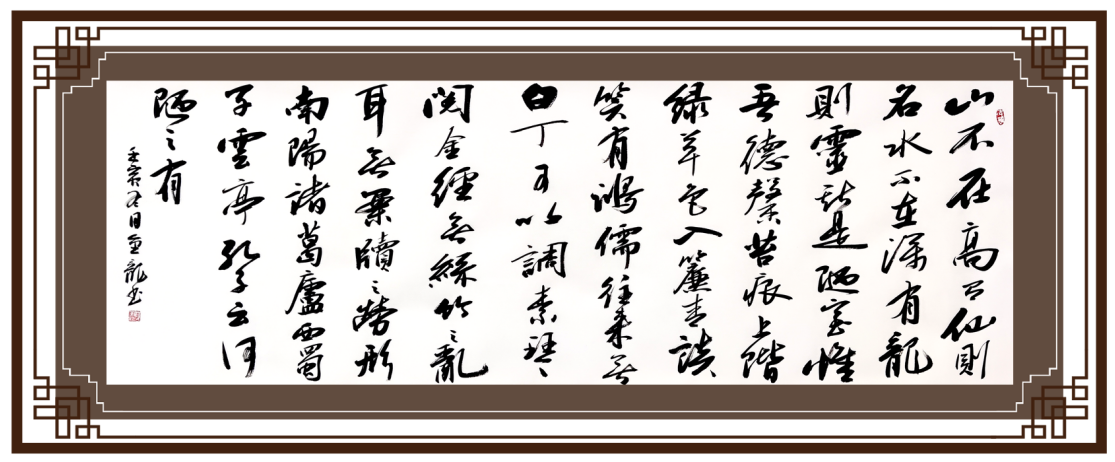 山不在高有仙則
名水不在深有龍
則靈斯是陋室惟
吾德馨苔痕上階
緑草色入簾青談
笑有鴻儒往來無
白丁可以調素琴
閲金經無絲竹之亂
耳無案牘之勞形
南陽諸葛廬西蜀
子雲亭孔子云何
陋之有
壬寅冬月金龍書